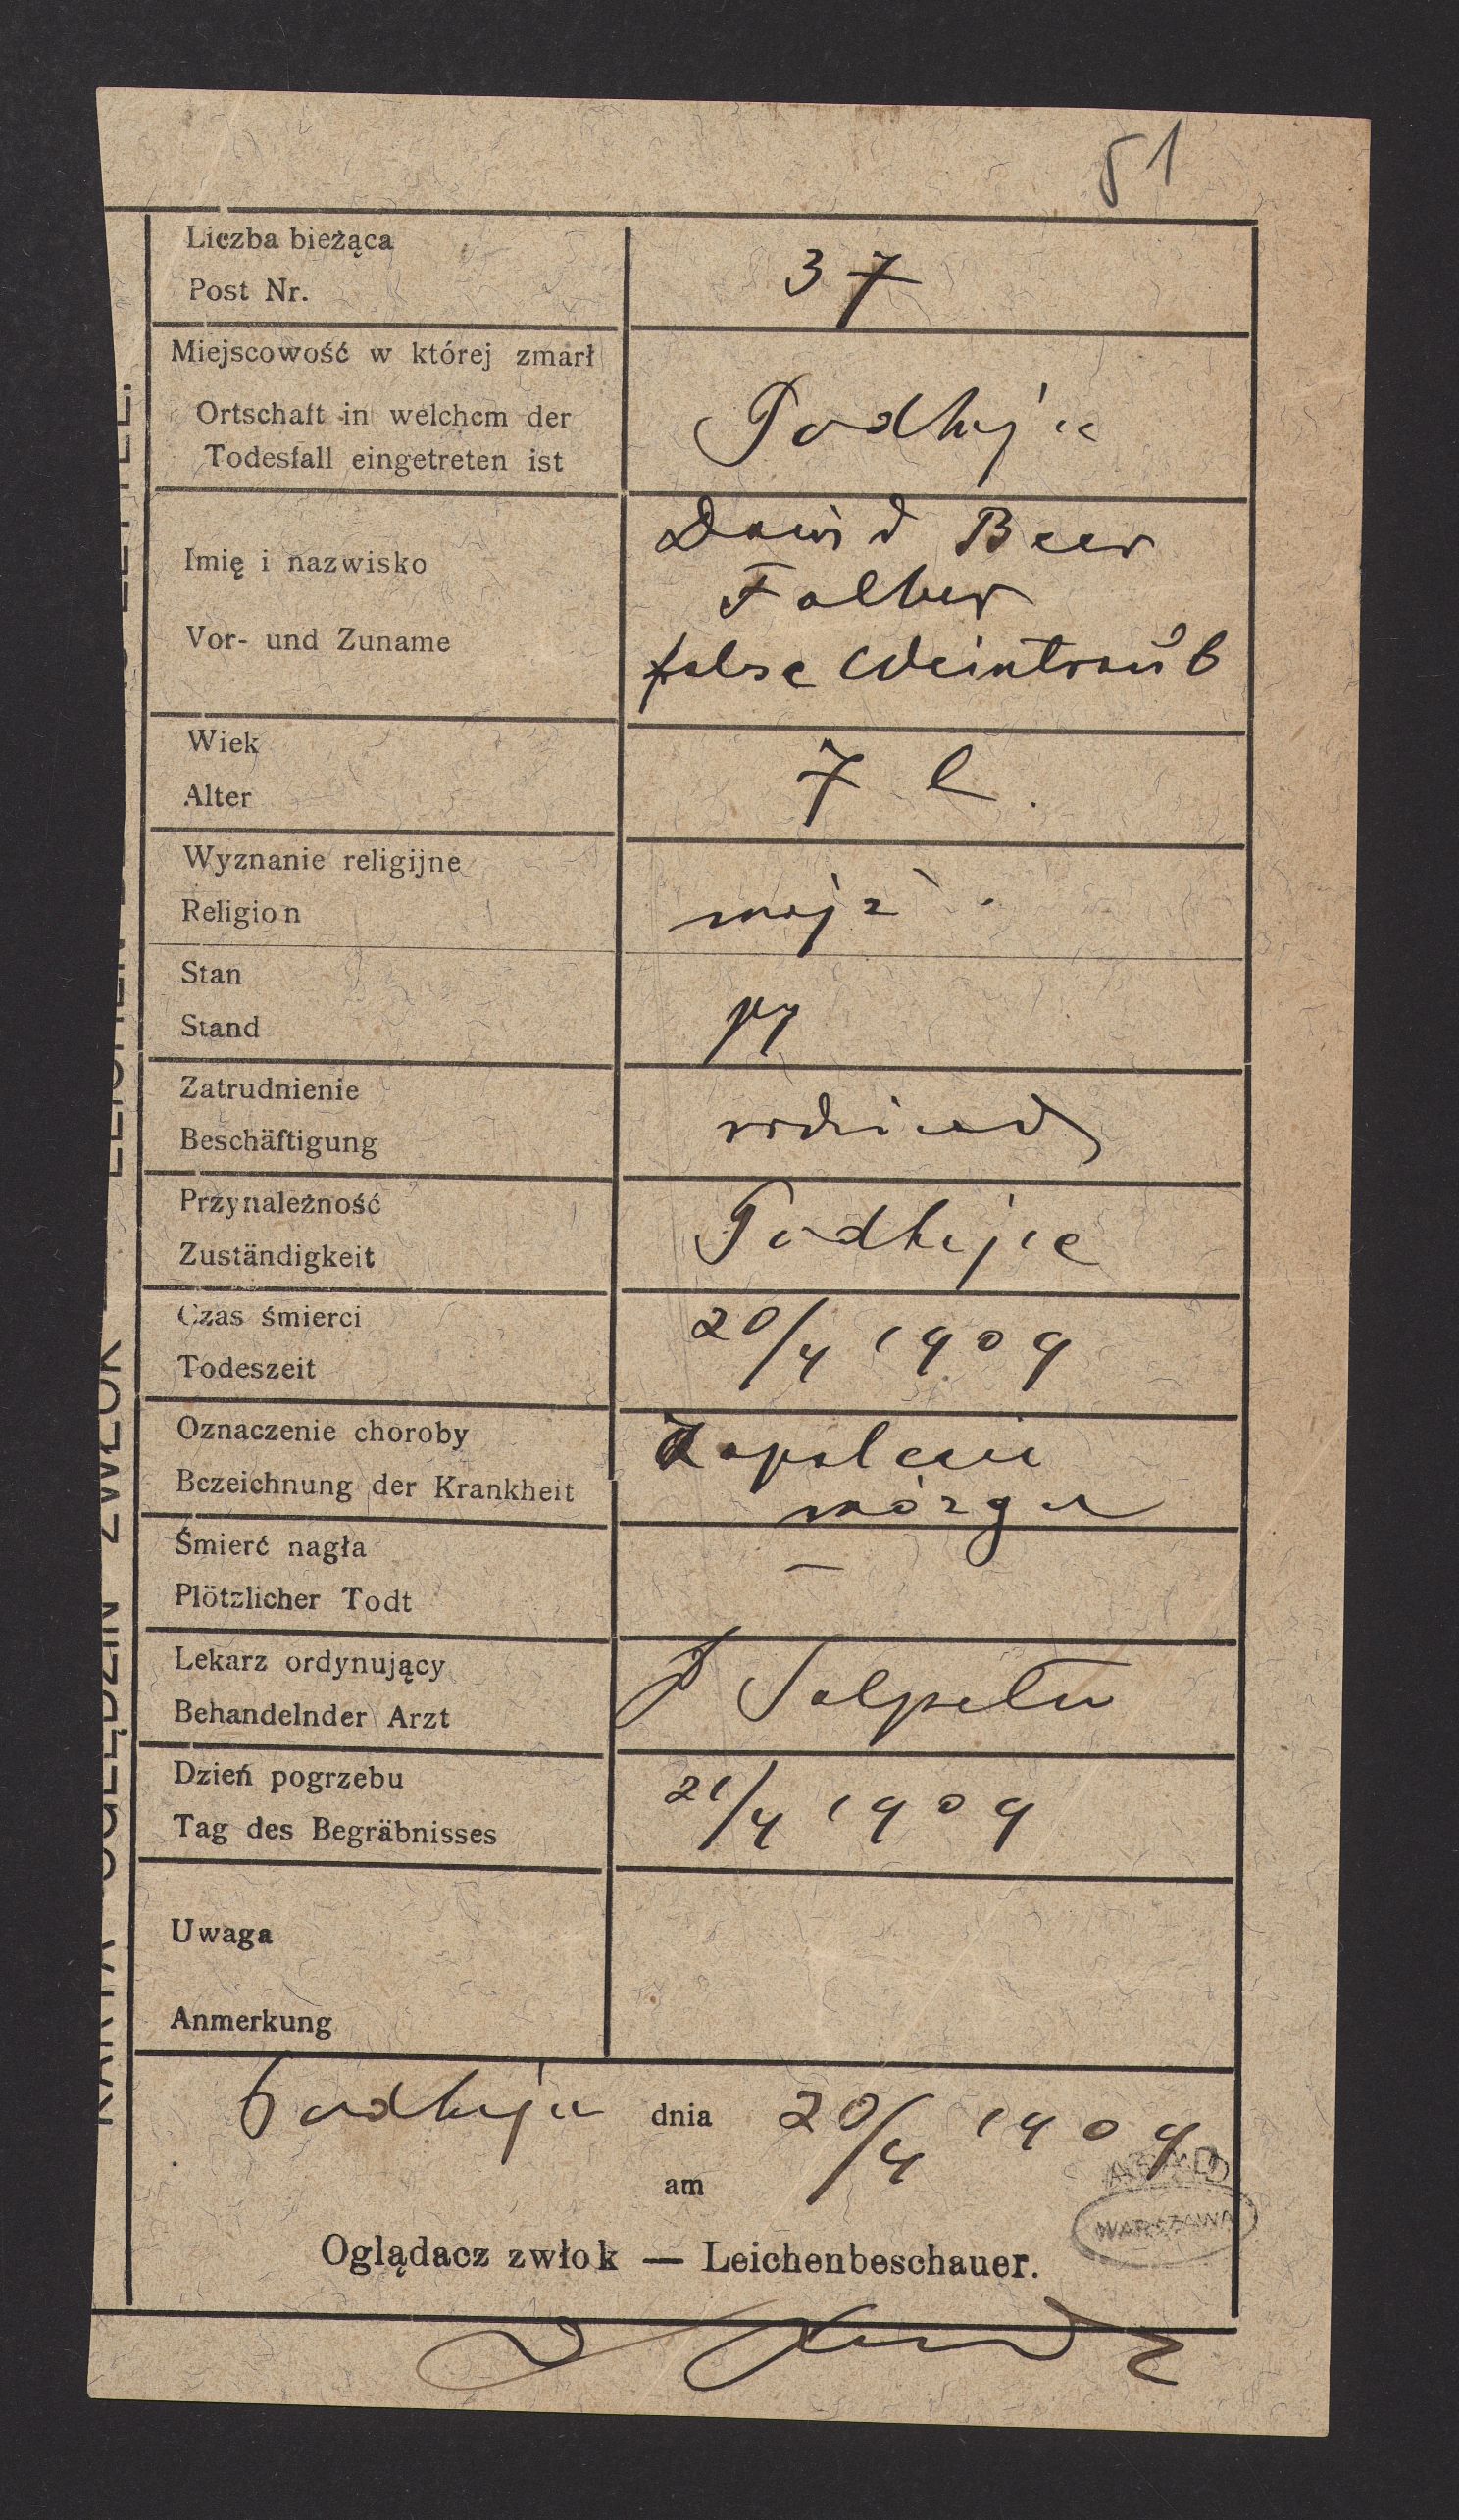 51
Liczba bieżąca
Post Nr.
37
Miejscowość w której zmarł
Ortschaft in welchem der
Todesfall eingetreten ist
Podhajce
Imię i nazwisko
Vor- und Zuname
Dawid Beer
Falber
false Weintraub
Wiek
Alter
7 l.
Wyznanie religijne
Religion
mojż.
Stan
Stand
Zatrudnienie
Beschäftigung
Przynależność
Zuständigkeit
Podhajce
Czas śmierci
Todeszeit
20/4 1909
Oznaczenie choroby
Bezeichnung der Krankheit
Zapalenie
mózgu
Śmierć nagła
Plötzlicher Todt
—
Lekarz ordynujący
Behandelnder Arzt
Salpeter
Dzień pogrzebu
Tag des Begräbnisses
21/4 1909
Uwaga
Anmerkung
Podhajce dnia 20/4 1909
am
WARSZAWA
Oglądacz zwłok — Leichenbeschauer.